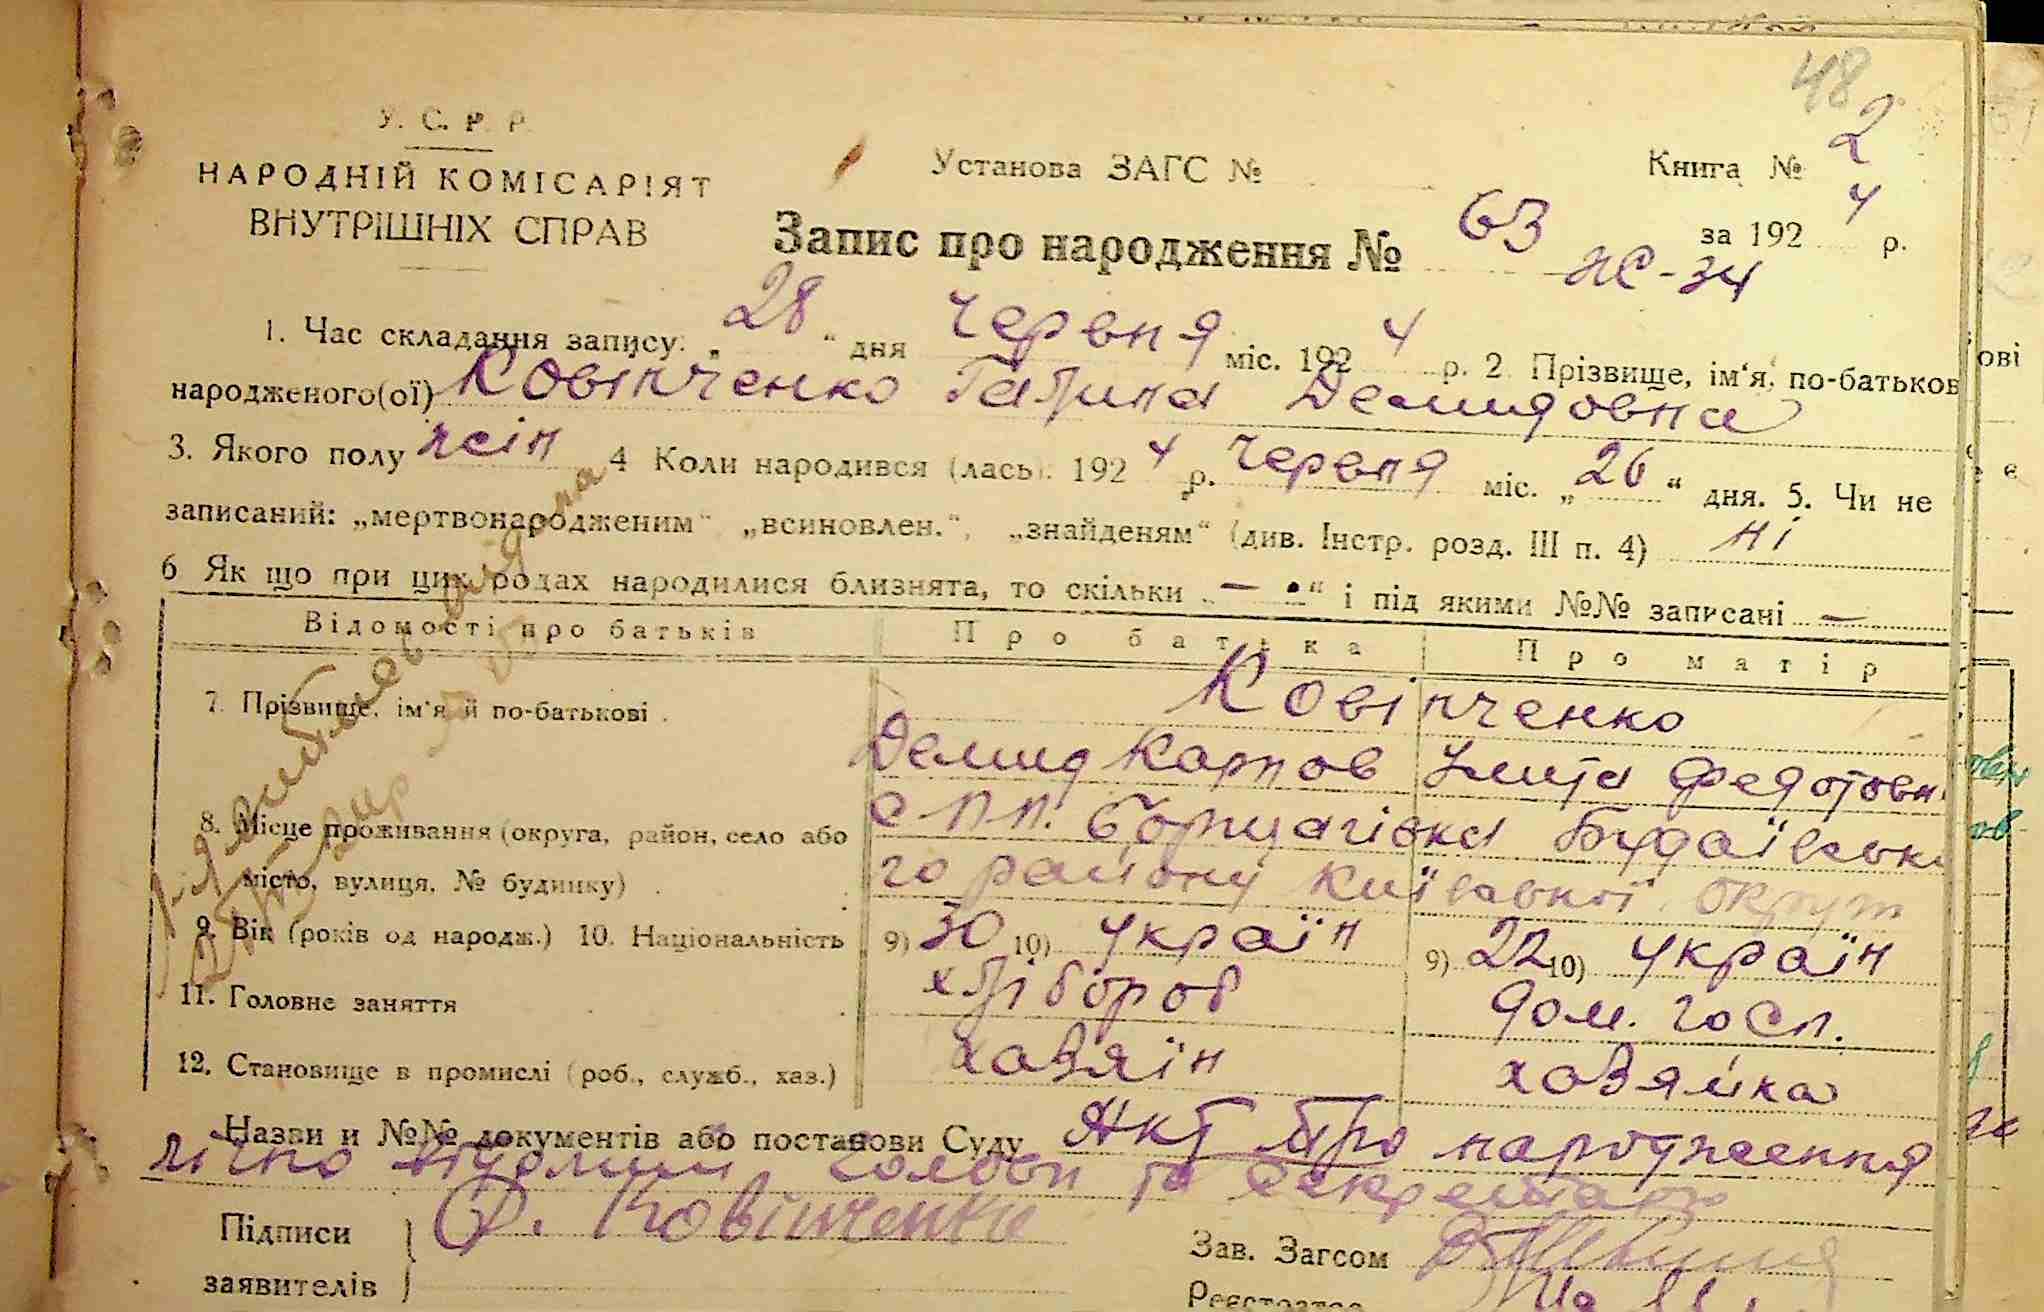 48
У. С. Р. Р.
НАРОДНІЙ КОМІСАРІЯТ
ВНУТРІШНІХ СПРАВ
Установа ЗАГС №
Книга № 2
Запис про народження № 63
за 1924 р.
ЖС-34
1. Час складання запису: „28“ дня червня міс. 1924 р. 2. Прізвище, ім'я, по-батьков
народженого(ої) Ковінченко Галина Демидовна
3. Якого полу жін 4 Коли народився (лась). 1924 р. червня міс. „26“ дня. 5. Чи не
записаний: „мертвонародженим“ „всиновлен.“, „знайденям“ (див. Інстр. розд. III п. 4) ні
6 Як що при цих родах народилися близнята, то скільки „—“ і під якими №№ записані —
Відомості про батьків Про батька Про матір
7. Прізвище, ім'я й по-батькові Ковінченко
Демид Карпов Улита Федотовн
8. Місце проживання (округа, район, село або с. П.П. Борщагівка Будаївськ
місто, вулиця, № будинку) го району Київської округи
9. Вік (років од народж.) 10. Національність 9) 30 10) україн 9) 22 10) україн
11. Головне заняття хлібороб дом. госп.
12. Становище в промислі (роб., служб., хаз.) хазяїн хазяйка
Назви и №№ документів або постанови Суду Акт про народження
відомий голови та секретаря
Підписи Д. Ковінченко
заявителів
Зав. Загсом